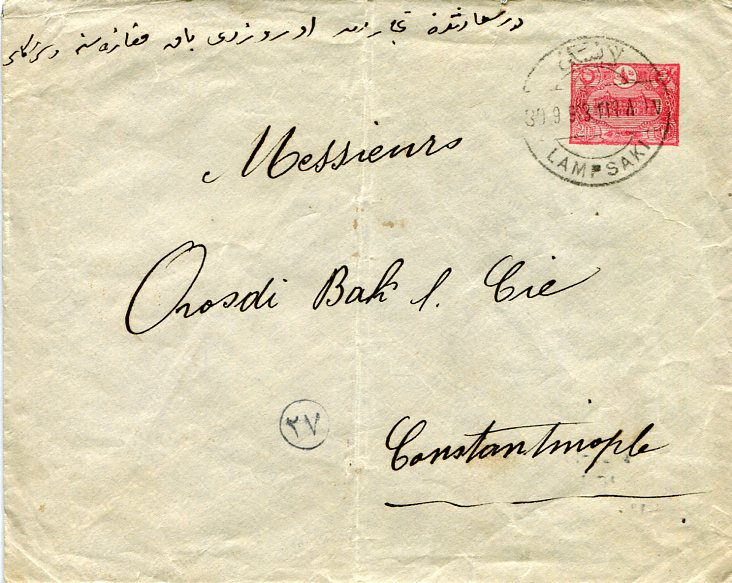 در سعادتده تجارتدن اوروزدی باق مغازه سنه
لاپسكی
LAMPSAKI
20
Messieurs
Orosdi Bak & Cie
٢٧
Constantinople